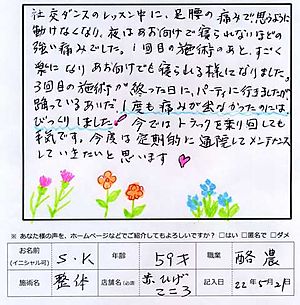 社交ダンスのレッスン中に、足腰の痛みで思うように
動けなくなり、夜はあお向けで寝られないほどの
強い痛みでした。1回目の施術のあと、すごく
楽になりあお向けでも寝られる様になりました。
3回目の施術が終った日に、パーティに行きましたが
踊っているあいだ、1度も痛みが出なかったのには
びっくりしました!今ではトラックを乗り回しても
平気です。今度は定期的に通院してメンテナンス
していきたいと思います
※あなた様の声を、ホームページなどでご紹介してもよろしいですか? □はい □匿名で □ダメ
お名前
(イニシャル可)
S・K
年齢
59才
職業
酪農
施術名
整体
店舗名
赤ひげ
こころ
記入日
22年5月21日